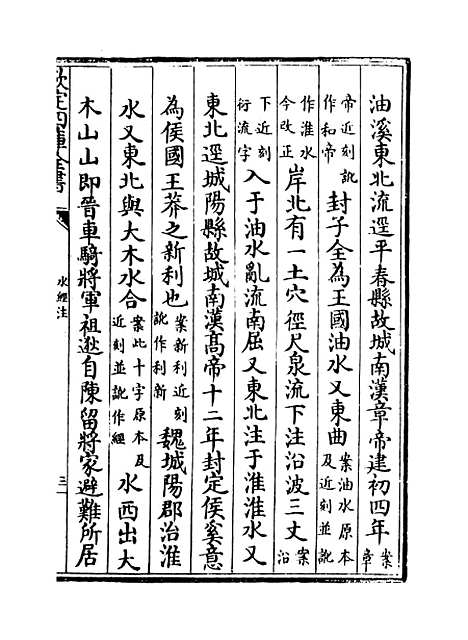 油溪東北流逕平春縣故城南漢章帝建初四年案章
帝近刻訛作和帝封子全為王國油水又東曲案油水原本及近刻並訛
作淮水今改正岸北有一土穴徑尺泉流下注沿波三丈案沿
下近刻衍流字入于油水亂流南屈又東北注于淮淮水又
東北逕城陽縣故城南漢高帝十二年封定侯奚意
為侯國王莽之新利也案新利近刻訛作利新魏城陽郡治淮
水又東北與大木水合案此十字原本及近刻並訛作經水西出大
木山山即晉車騎將軍祖逖自陳留將家避難所居
欽定四庫全書
水經注